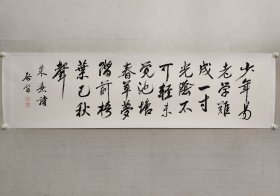 少年易
老学難
成一寸
光陰不
可輕未
覺池塘
春草夢
階前梧
葉已秋
聲
朱熹詩